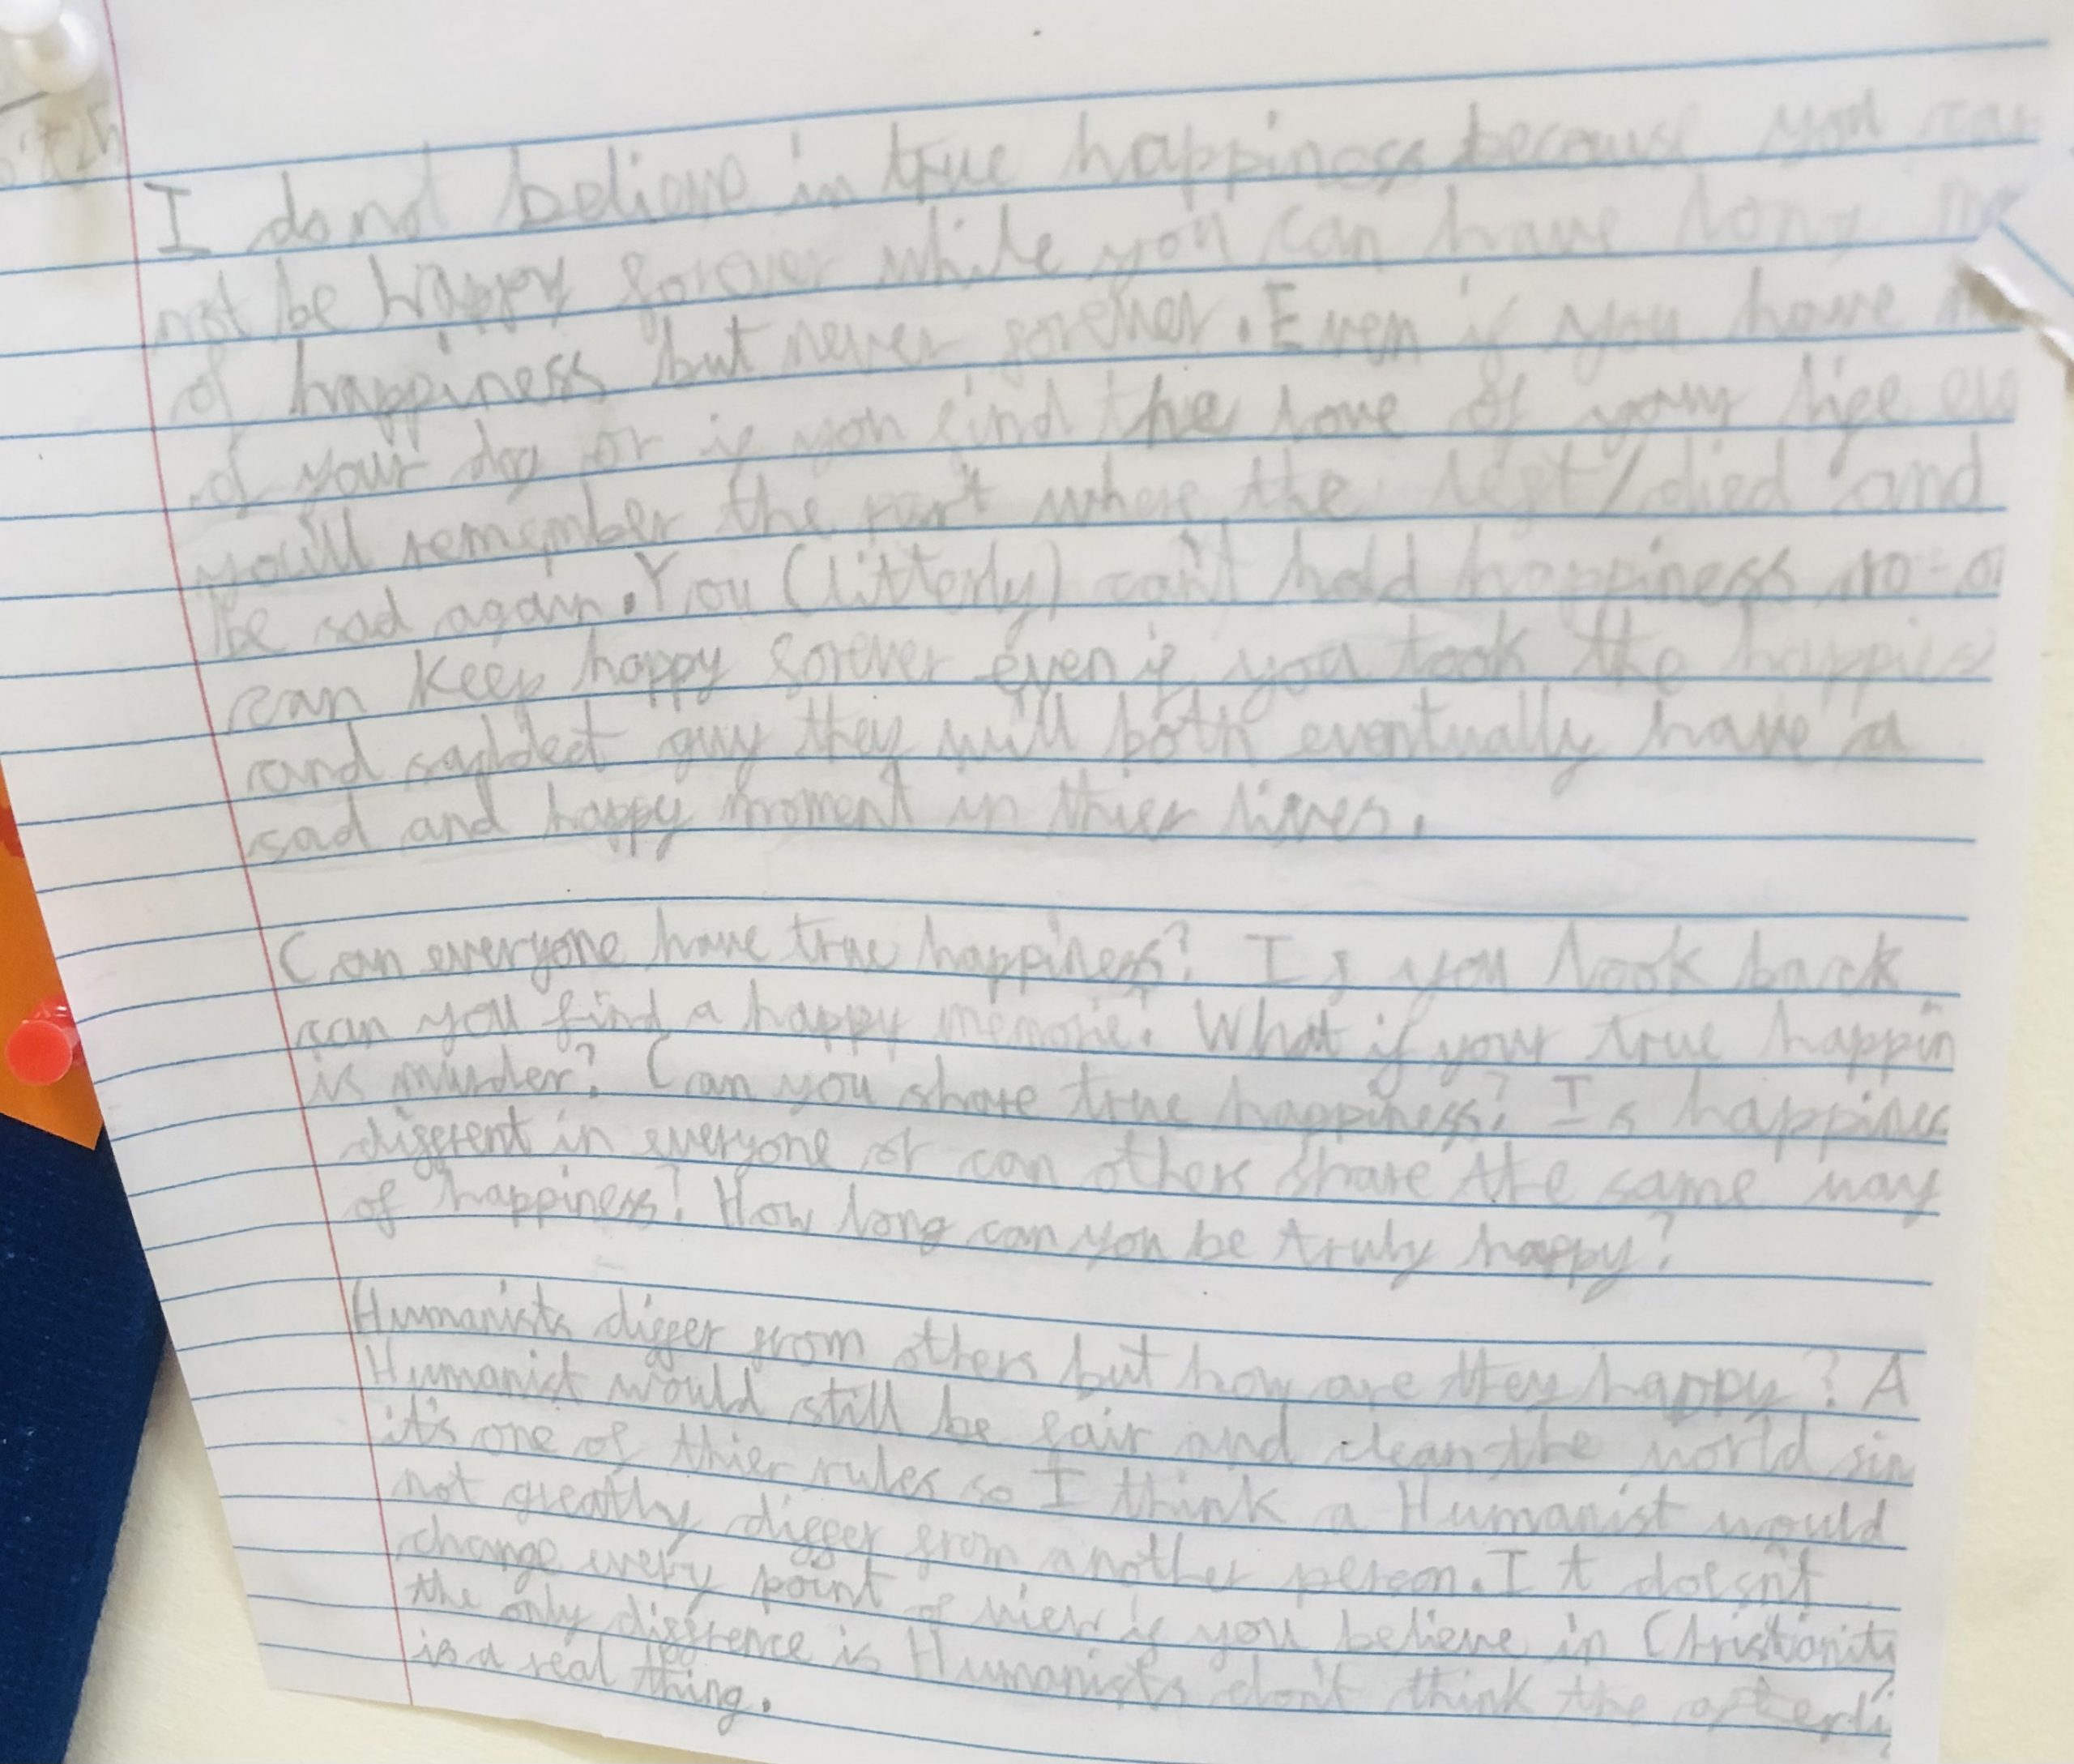 I do not believe in true happiness because you can
not be happy forever while you can have long
of happiness but never forever. Even if you have
of your dog or if you find the love of your life
you'll remember the part where the left/died and
be sad again. You (litterly) can't hold happiness no-o
can keep happy forever even if you took the happies
and saddest guy they will both eventually have a
sad and happy moment in thier lives.
Can everyone have true happiness? If you look back
can you find a happy memorie? What if your true happin
is murder? Can you share true happiness? Is happines
different in everyone or can others share the same way
of happiness? How long can you be truly happy?
Humanists differ from others but how are they happy? A
Humanist would still be fair and clean the world sin
it's one of thier rules so I think a Humanist would
not greatly differ from another person. It doesn't
change every point of view if you believe in Christianity
the only diffrence is Humanists don't think the afterli
is a real thing.